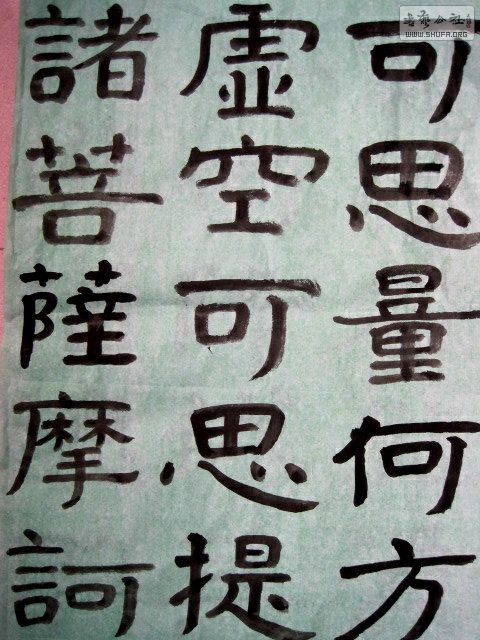 可思量何方
虛空可思提
諸菩薩摩訶
WWW.SHUFA.ORG